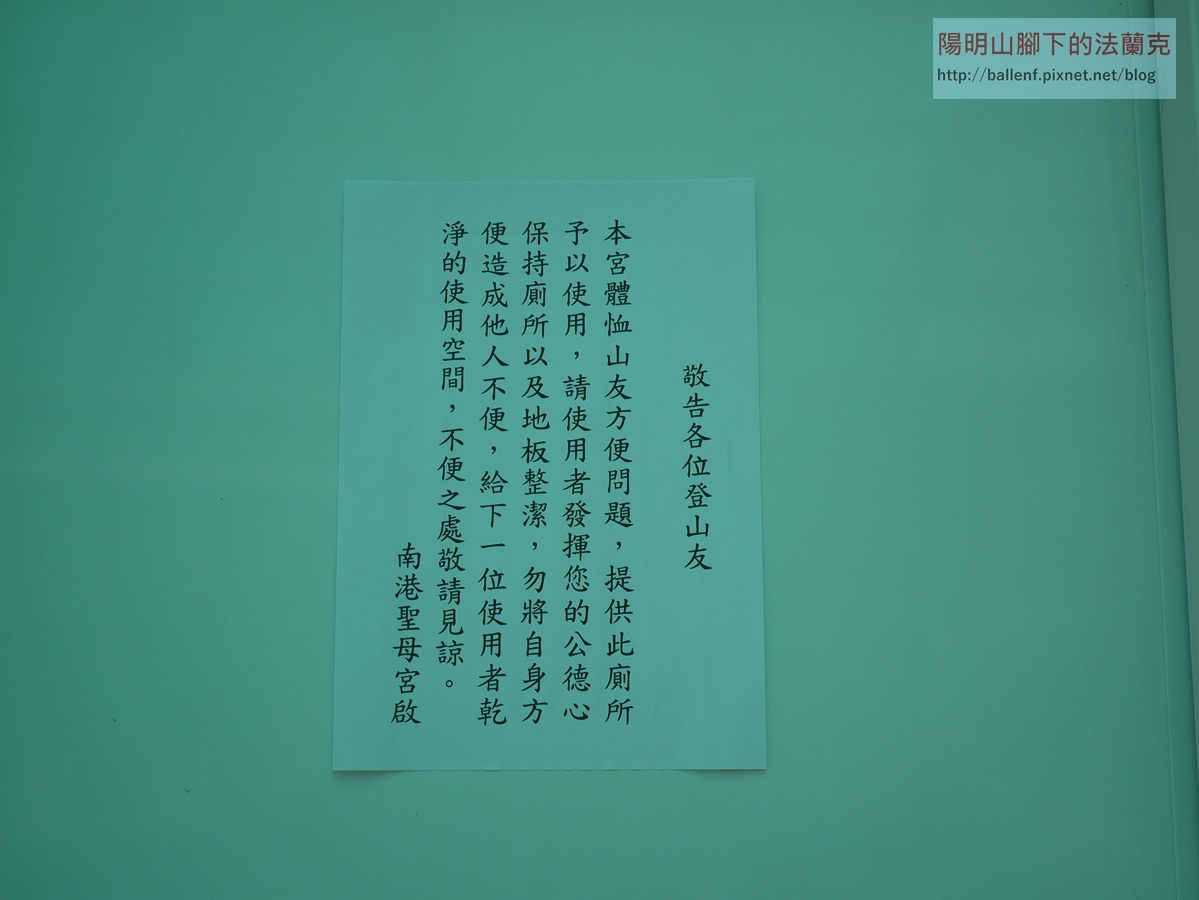 陽明山腳下的法蘭克
http://ballenf.pixnet.net/blog
敬告各位登山友
本宮體恤山友方便問題，提供此廁所
予以使用，請使用者發揮您的公德心
保持廁所以及地板整潔，勿將自身方
便造成他人不便，給下一位使用者乾
淨的使用空間，不便之處敬請見諒。
南港聖母宮啟